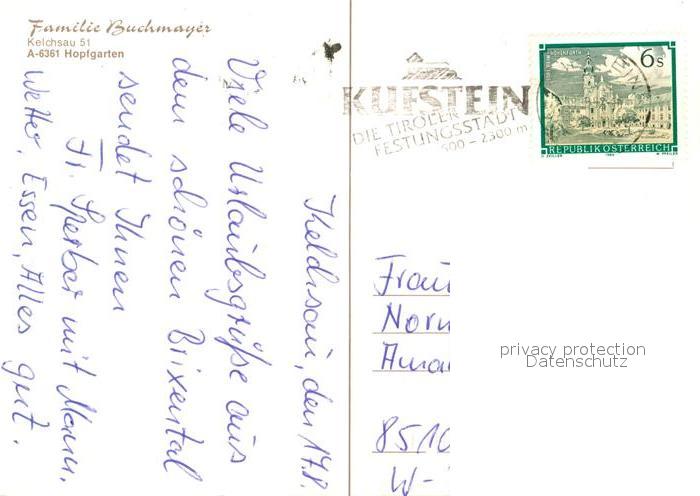 Familie Buchmayer
Kelchsau 51
A-6361 Hopfgarten
Kelchsau, den 17.8.
Viele Urlaubsgrüße aus
dem schönen Brixental
sendet Ihnen
Fr. Sperber mit Mann.
Wetter, Essen, Alles gut.
KUFSTEIN
DIE TIROLER
FESTUNGSSTADT
500 - 2300 m
6s
REPUBLIK ÖSTERREICH
Frau
8510
W-
privacy protection
Datenschutz